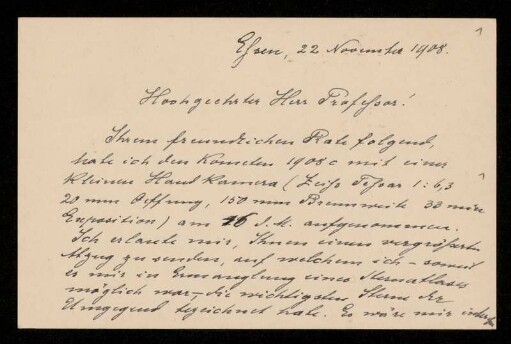 Essen, 22 November 1908.
Hochgeehrter Herr Professor!
Ihrem freundlichen Rate folgend,
habe ich den Kometen 1908 c mit einer
kleinen Handkamera (Zeiss Tessar 1:6,3
20 mm Öffnung, 150 mm Brennweite 33 min
Exposition) am 16 d. M. aufgenommen.
Ich erlaube mir, Ihnen einen vergrößerten
Abzug zu senden, auf welchem ich - soweit
es mir in Ermanglung eines Sternatlases
möglich war, - die wichtigsten Sterne der
Umgegend bezeichnet habe. Es wäre mir